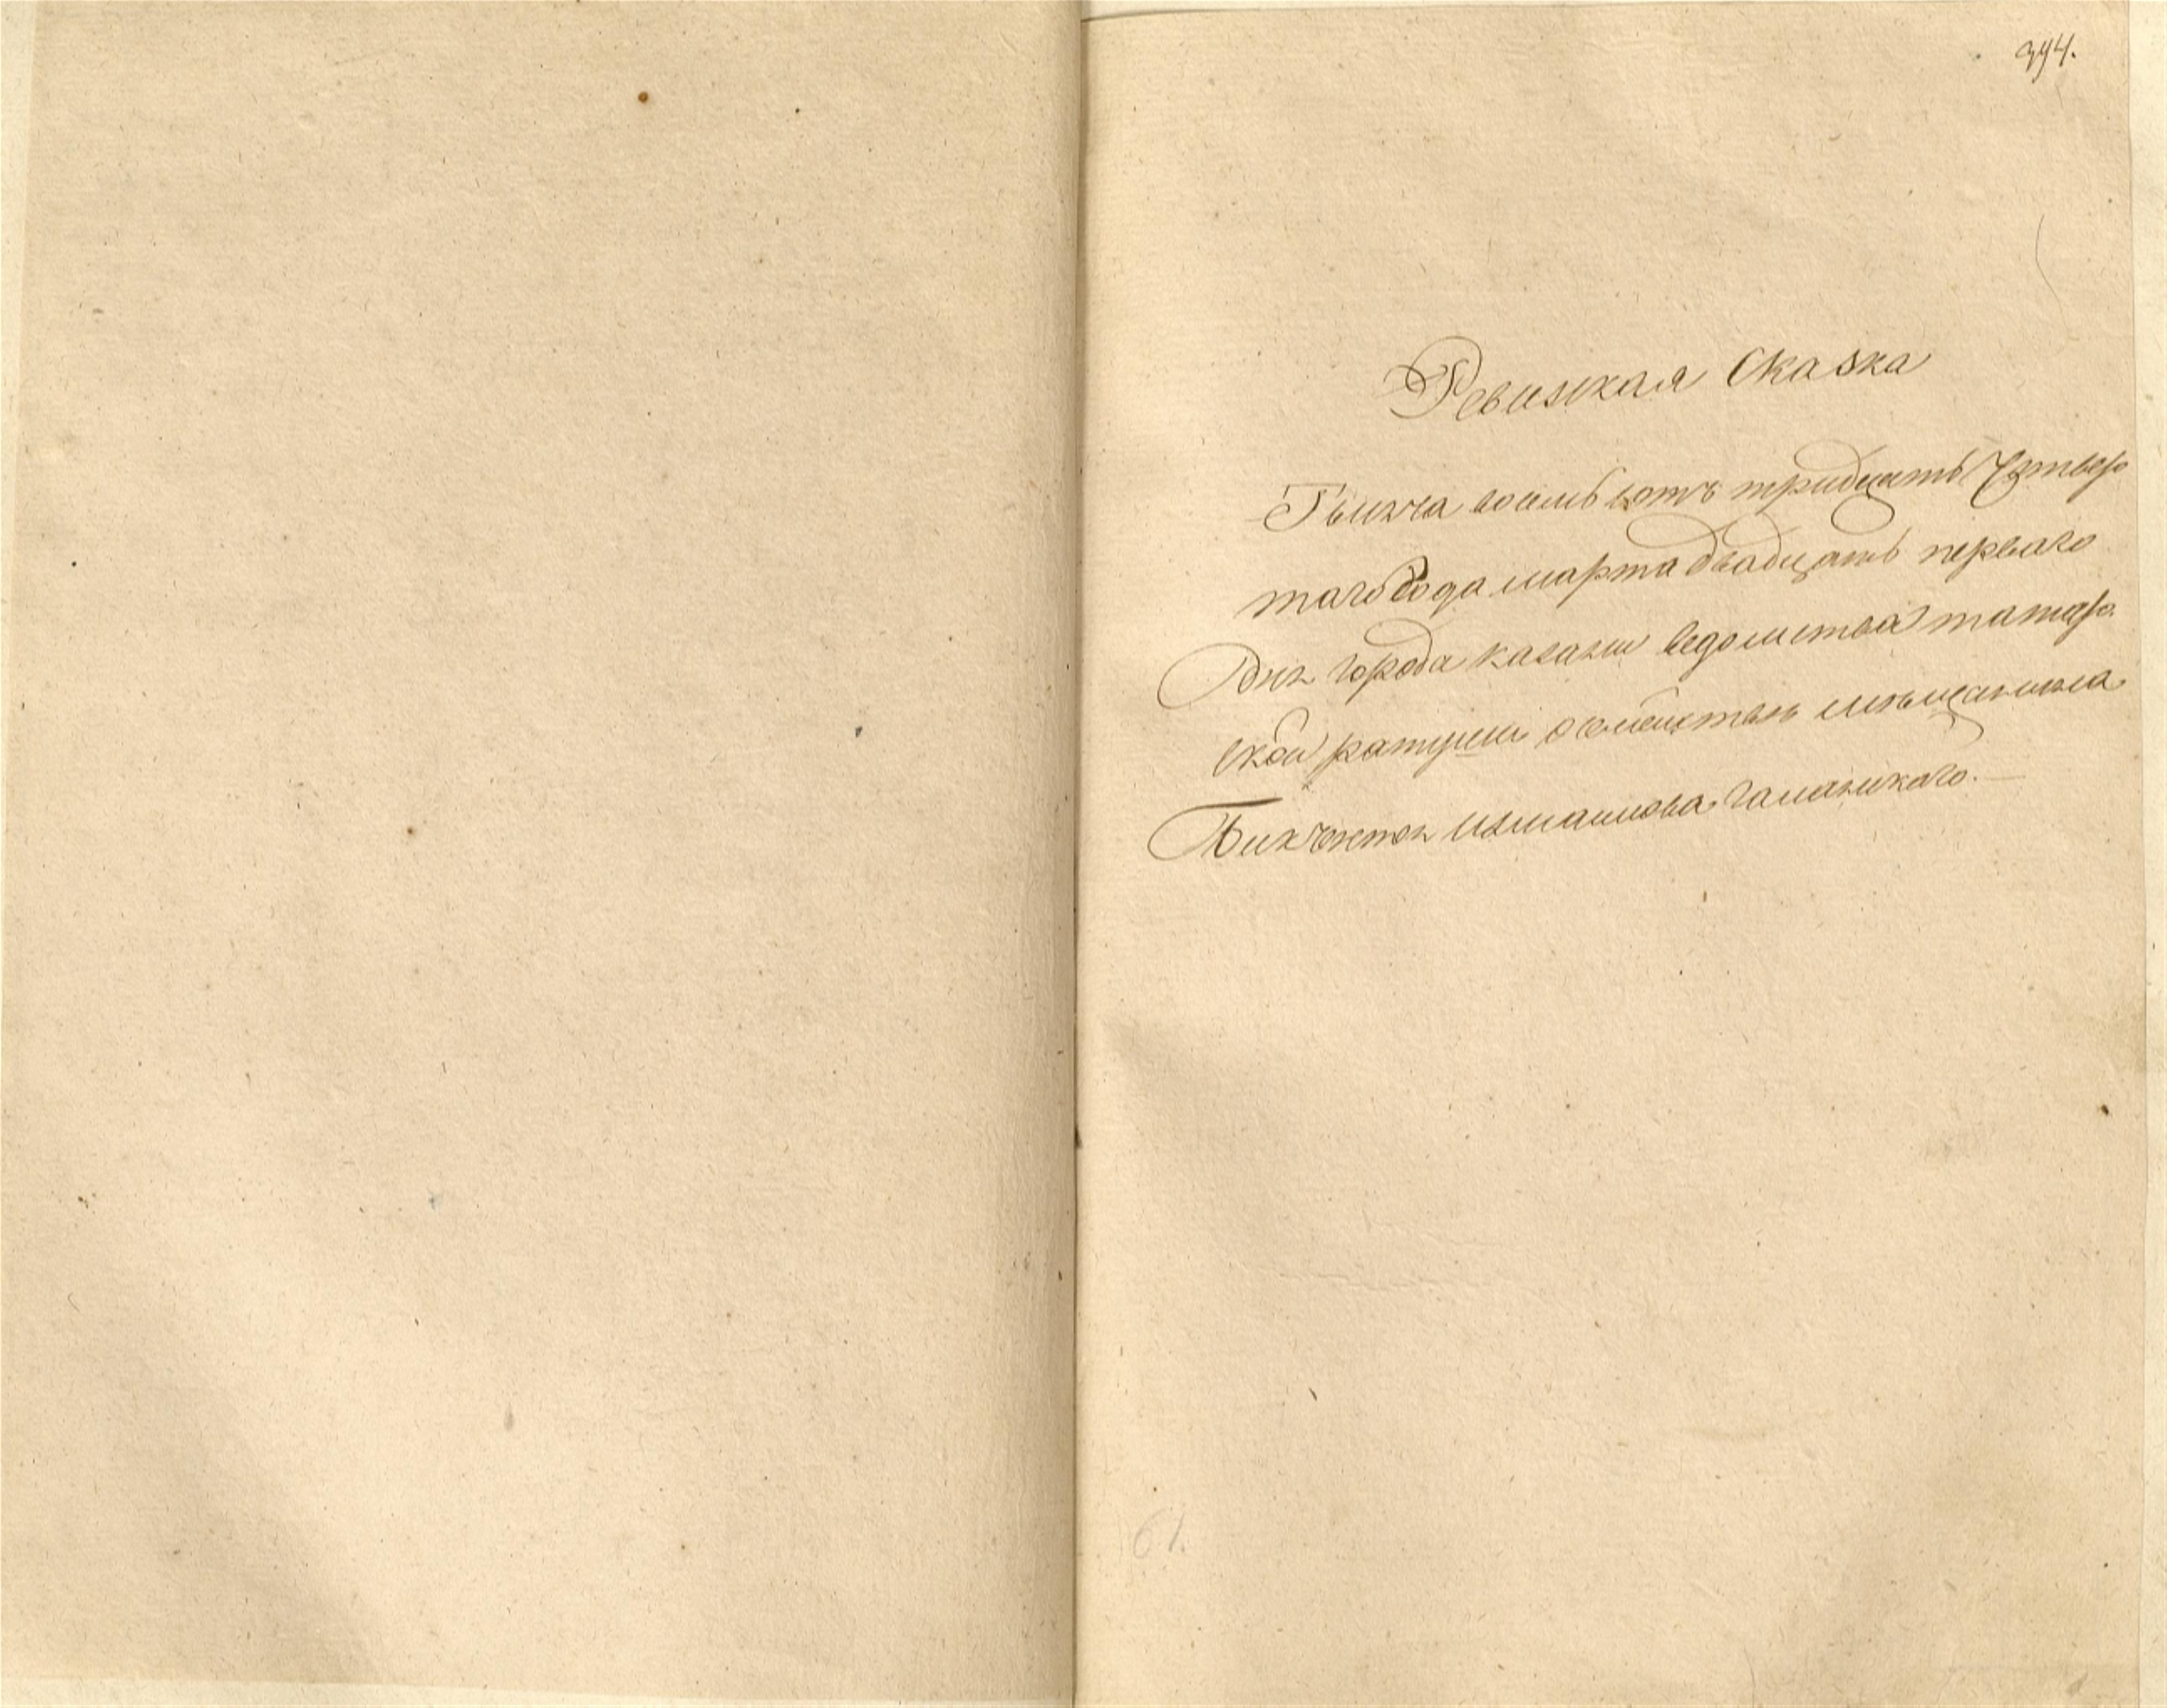 394.
Ревизская Сказка
Тысяча восемь сотъ тридцать Четвер
таго Года марта двадцать перваго
Дня города казани ведомства татар
ской ратуши о семействе мѣщанина
Бикчентея Измайлова
61.